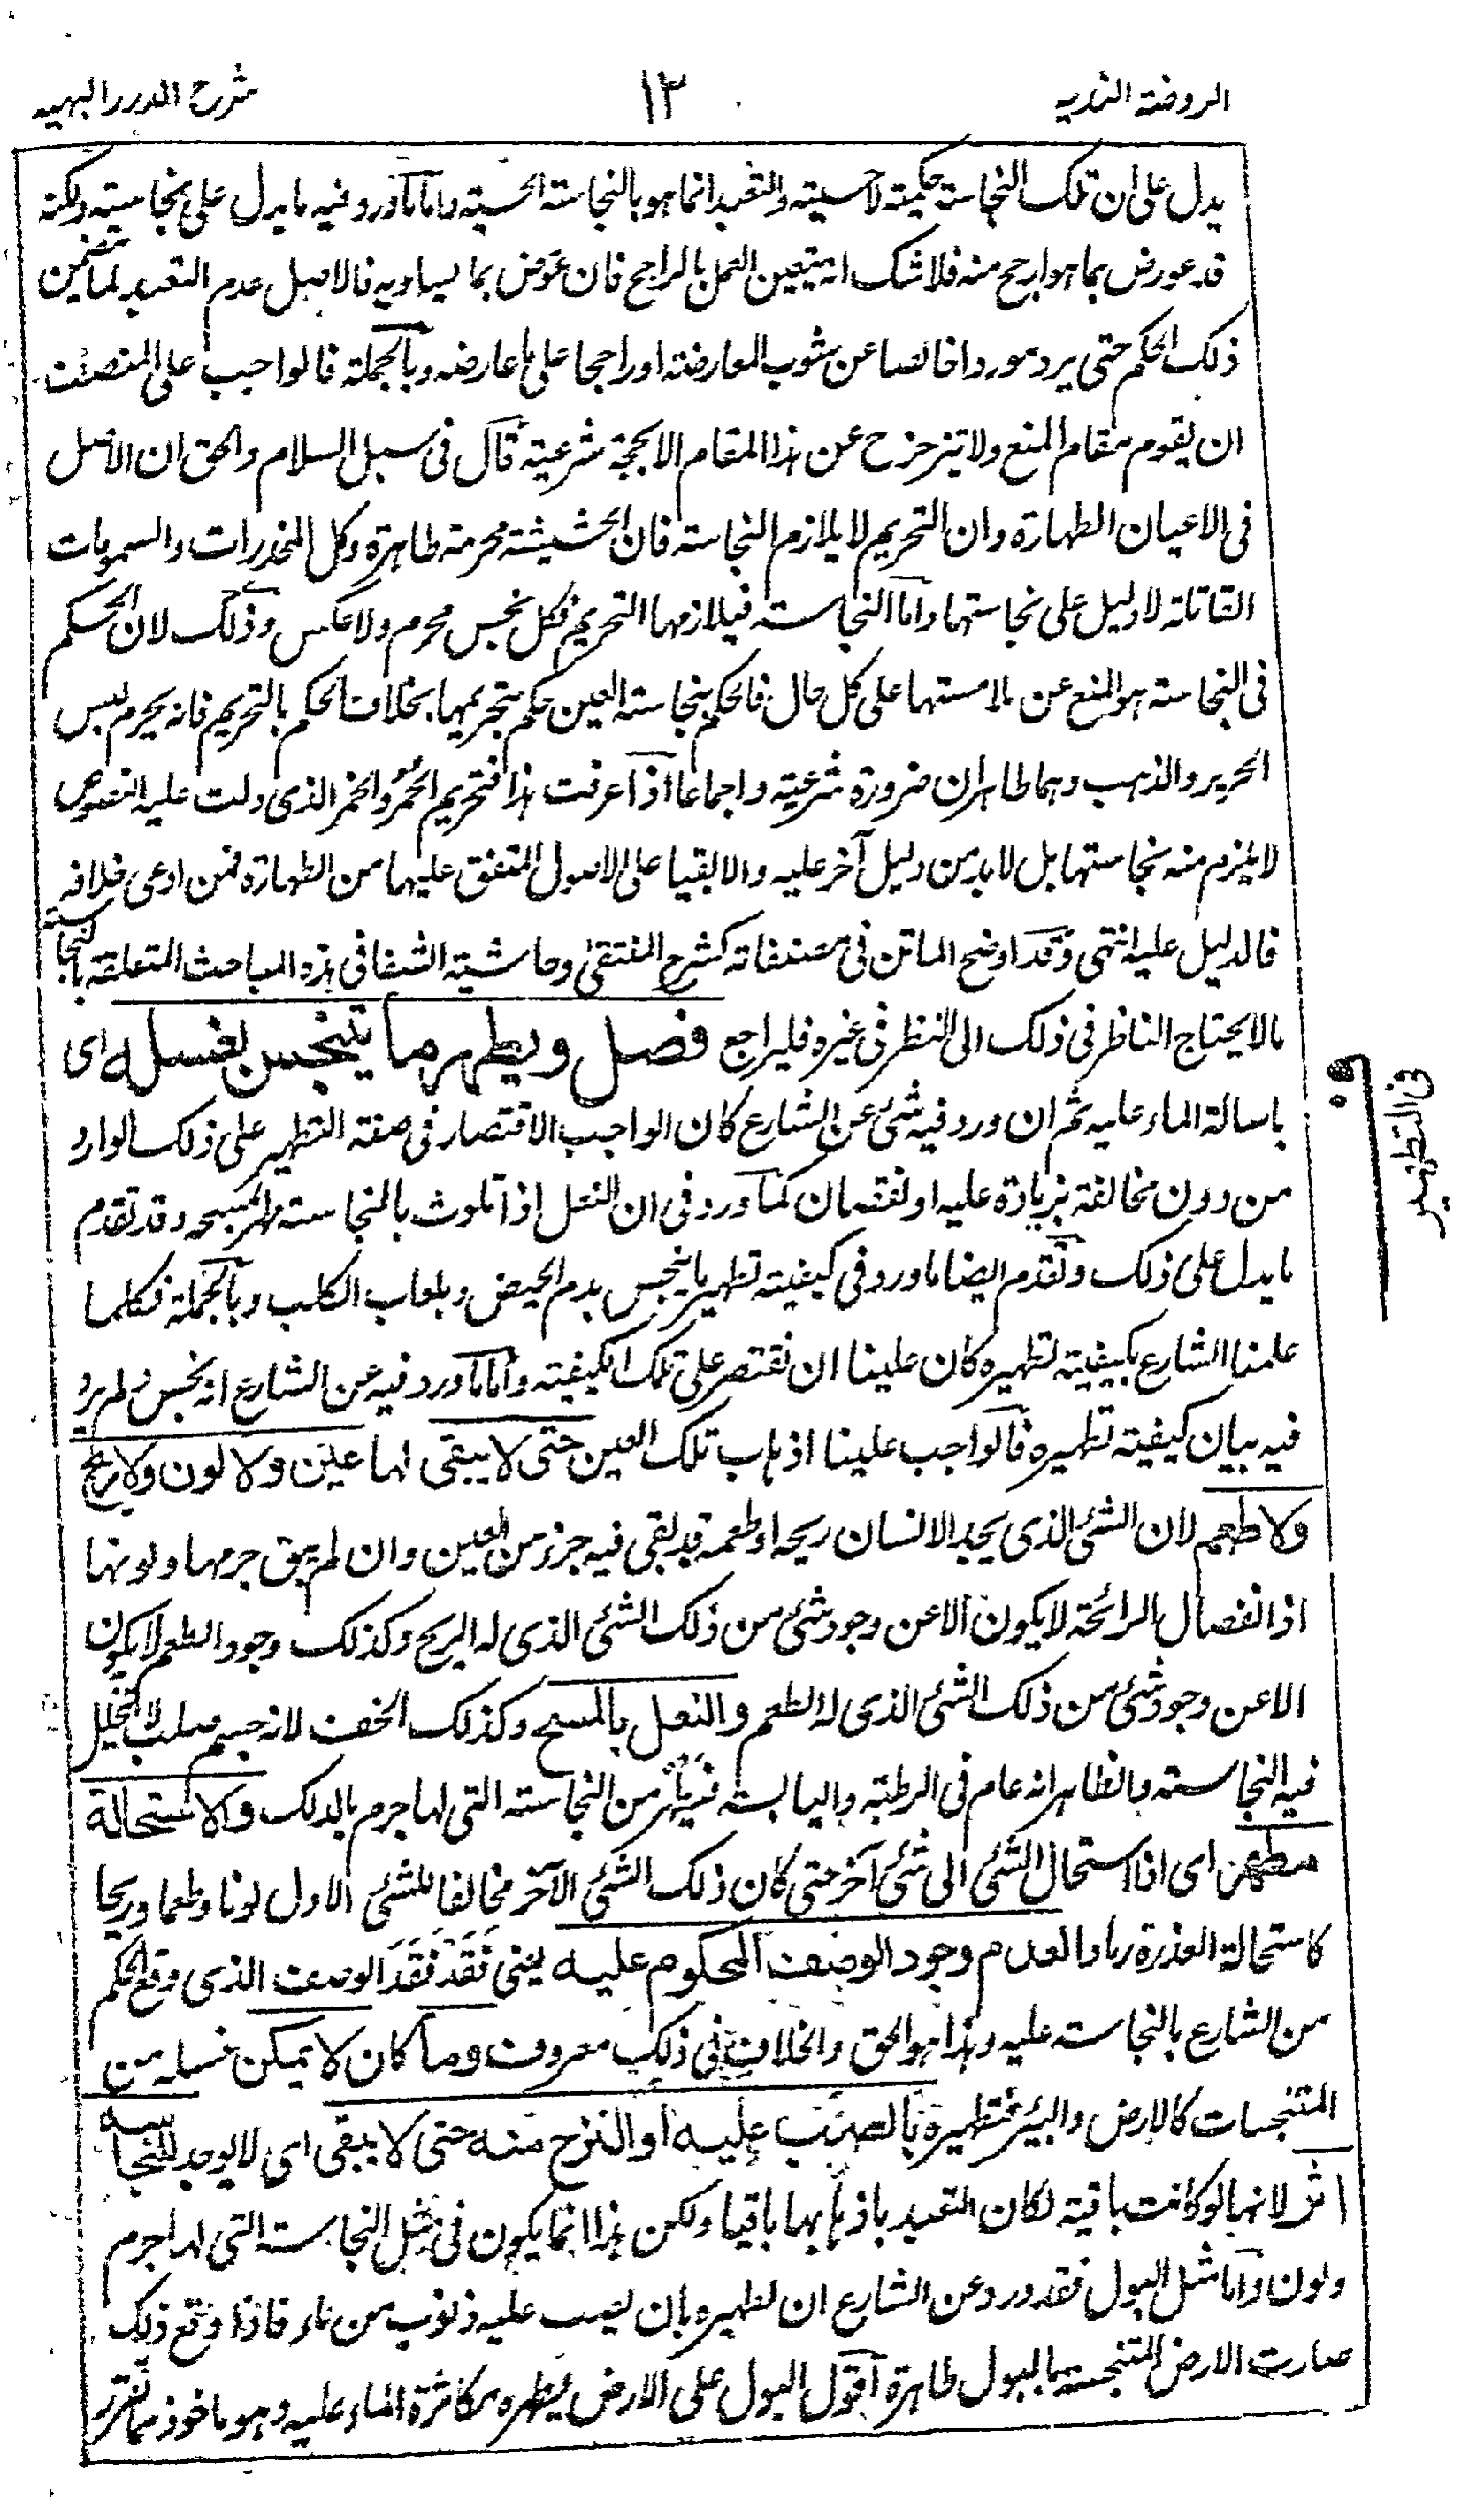 الروضة الندية
١٣
شرح الدرر البهية
يدل على ان تلك النجاسة حكمية لا حسية والتعبد انما هو بالنجاسة الحسية واما ما ورد فيه ما يدل على نجاسته ولكنه
قد عورض بما هو ارجح منه فلا شك انه يتعين العمل بالراجح فان عورض بما يساويه فالاصل عدم التعبد بما يتضمن
ذلك الحكم حتى يرد موردا خالصا عن شوب المعارضة او راجحا على ما عارضه وبالجملة فالواجب على المنصف
ان يقوم مقام المنع ولا يتزحزح عن هذا المقام الا بحجة شرعية قال فى سبل السلام والحق ان الاصل
فى الاعيان الطهارة وان التحريم لا يلازم النجاسة فان الحشيشة محرمة طاهرة وكل المخدرات والسمويات
القاتلة لا دليل على نجاستها واما النجاسة فيلازمها التحريم فكل نجس محرم ولا عكس وذلك لان الحكم
فى النجاسة هو المنع عن ملامستها على كل حال فالحكم بنجاسة العين حكم بتحريمها بخلاف الحكم بالتحريم فانه يحرم لبس
الحرير والذهب وهما طاهران ضرورة شرعية واجماعا اذا عرفت هذا فتحريم الحمر والخمر الذى دلت عليه النصوص
لا يلزم منه نجاستها بل لا بد من دليل آخر عليه والا بقيا على الاصول المتفق عليها من الطهارة فمن ادعى خلافه
فالدليل عليه انتهى وقد اوضح الماتن فى مصنفاته كشرح المنتقى وحاشية الشفا فى هذه المباحث المتعلقة بالنجاسة
ما لا يحتاج الناظر فى ذلك الى النظر فى غيره فليراجع فصل ويطهر ما يتنجس بغسله اى
باسالة الماء عليه ثم ان ورد فيه شئ عن الشارع كان الواجب الاقتصار فى صفة التطهير على ذلك الوارد
من دون مخالفة بزيادة عليه او نقصان كما ورد فى ان النعل اذا تلوث بالنجاسة طهر بمسحه وقد تقدم
ما يدل على ذلك وتقدم ايضا ما ورد فى كيفية تطهير ما ينجس بدم الحيض وبلعاب الكلب وبالجملة فكلما
علمنا الشارع بكيفية تطهيره كان علينا ان نقتصر على تلك الكيفية واما ما ورد فيه عن الشارع انه نجس ولم يرد
فيه بيان كيفية تطهيره فالواجب علينا اذهاب تلك العين حتى لا يبقى لها عين ولا لون ولا ريح
ولا طعم لان الشئ الذى يجد الانسان ريحه او طعمه قد بقى فيه جزء من العين وان لم يبق جرمها ولونها
اذ انفصال الرائحة لا يكون الا عن وجود شئ من ذلك الشئ الذى له الريح وكذلك وجود الطعم لا يكون
الا عن وجود شئ من ذلك الشئ الذى له الطعم والنعل بالمسح وكذلك الخف لانه جسم صلب لا تتخلل
فيه النجاسة والظاهر انه عام فى الرطبة واليابسة فيطهر من النجاسة التى لها جرم بالدلك والاستحالة
مطهرة اى اذا استحال الشئ الى شئ آخر حتى كان ذلك الشئ الآخر مخالفا للشئ الاول لونا وطعما وريحا
كاستحالة العذرة رمادا لعدم وجود الوصف المحكوم عليه يعنى فقد فقد الوصف الذى وقع الحكم
من الشارع بالنجاسة عليه وهذا هو الحق والخلاف فى ذلك معروف وما كان لا يمكن غسله من
المتنجسات كالارض والبئر فتطهيره بالصب عليه او النزح منه حتى لا يبقى اى لا يوجد للنجاسة
اثر لانها لو كانت باقية لكان التعبد باذهابها باقيا ولكن هذا انما يكون فى مثل النجاسة التى لها جرم
ولون واما مثل البول فقد ورد عن الشارع ان تطهيره بان يصب عليه ذنوب من ماء فاذا وقع ذلك
صارت الارض المتنجسة بالبول طاهرة اقول البول على الارض يطهره مكاثرة الماء عليه وهو ماخوذ مما تقرر
ف فى التطهير